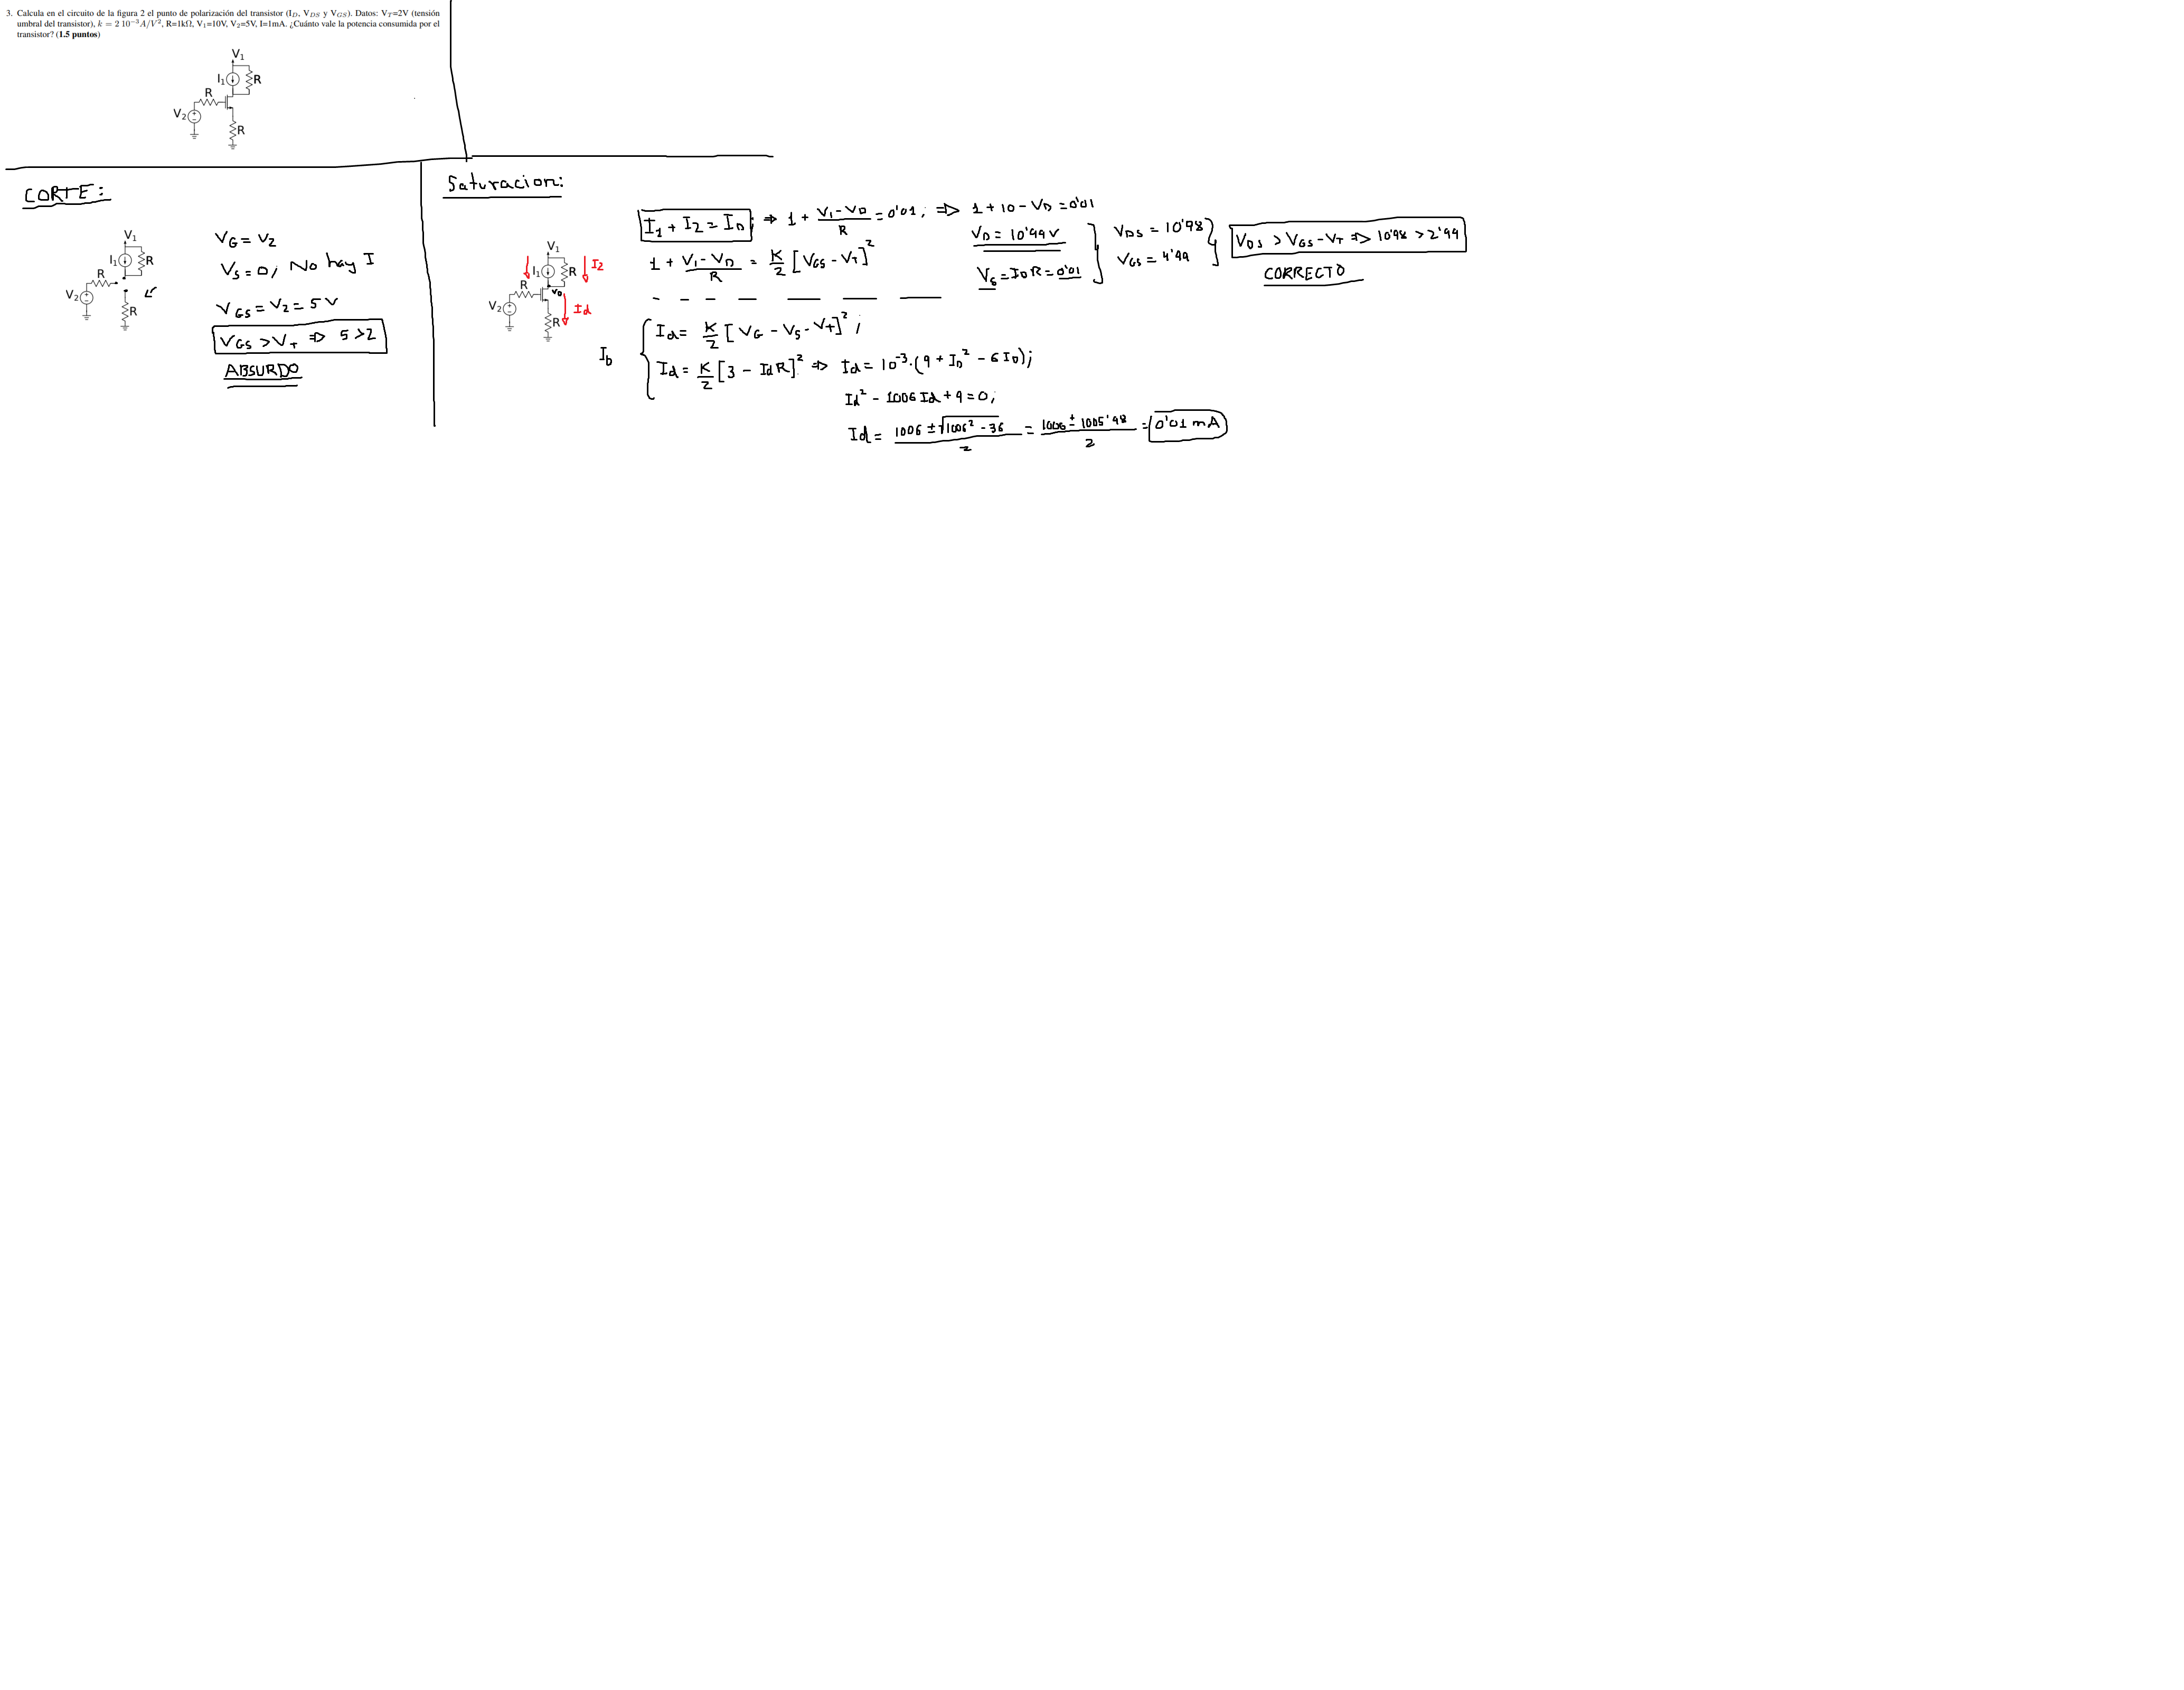 3. Calcula en el circuito de la figura 2 el punto de polarización del transistor (I_D, V_DS y V_GS). Datos: V_T=2V (tensión
umbral del transistor), k = 2 10^-3 A/V^2, R=1kΩ, V_1=10V, V_2=5V, I=1mA. ¿Cuánto vale la potencia consumida por el
transistor? (1.5 puntos)
V_1
I_1
R
R
V_2
R
CORTE:
V_1
I_1
R
R
V_2
R
V_G = V_2
V_S = 0; No hay I
V_GS = V_2 = 5 V
V_GS > V_T ⇒ 5 > 2
ABSURDO
Saturacion:
V_1
I_1
R
I_2
R
V_D
V_2
R
Id
I_1 + I_2 = I_D; ⇒ 1 + (V_1 - V_D)/R = 0'01; ⇒ 1 + 10 - V_D = 0'01
1 + (V_1 - V_D)/R = K/2 [V_GS - V_T]^2
V_D = 10'99 V
V_S = I_D R = 0'01
V_DS = 10'98
V_GS = 4'99
V_DS > V_GS - V_T ⇒ 10'98 > 2'99
CORRECTO
I_D
Id = K/2 [V_G - V_S - V_T]^2;
Id = K/2 [3 - Id R]^2 ⇒ Id = 10^-3 · (9 + I_D^2 - 6 I_D);
Id^2 - 1006 Id + 9 = 0;
Id = (1006 ± √(1006^2 - 36))/2 = (1006 ± 1005'98)/2 = 0'01 mA